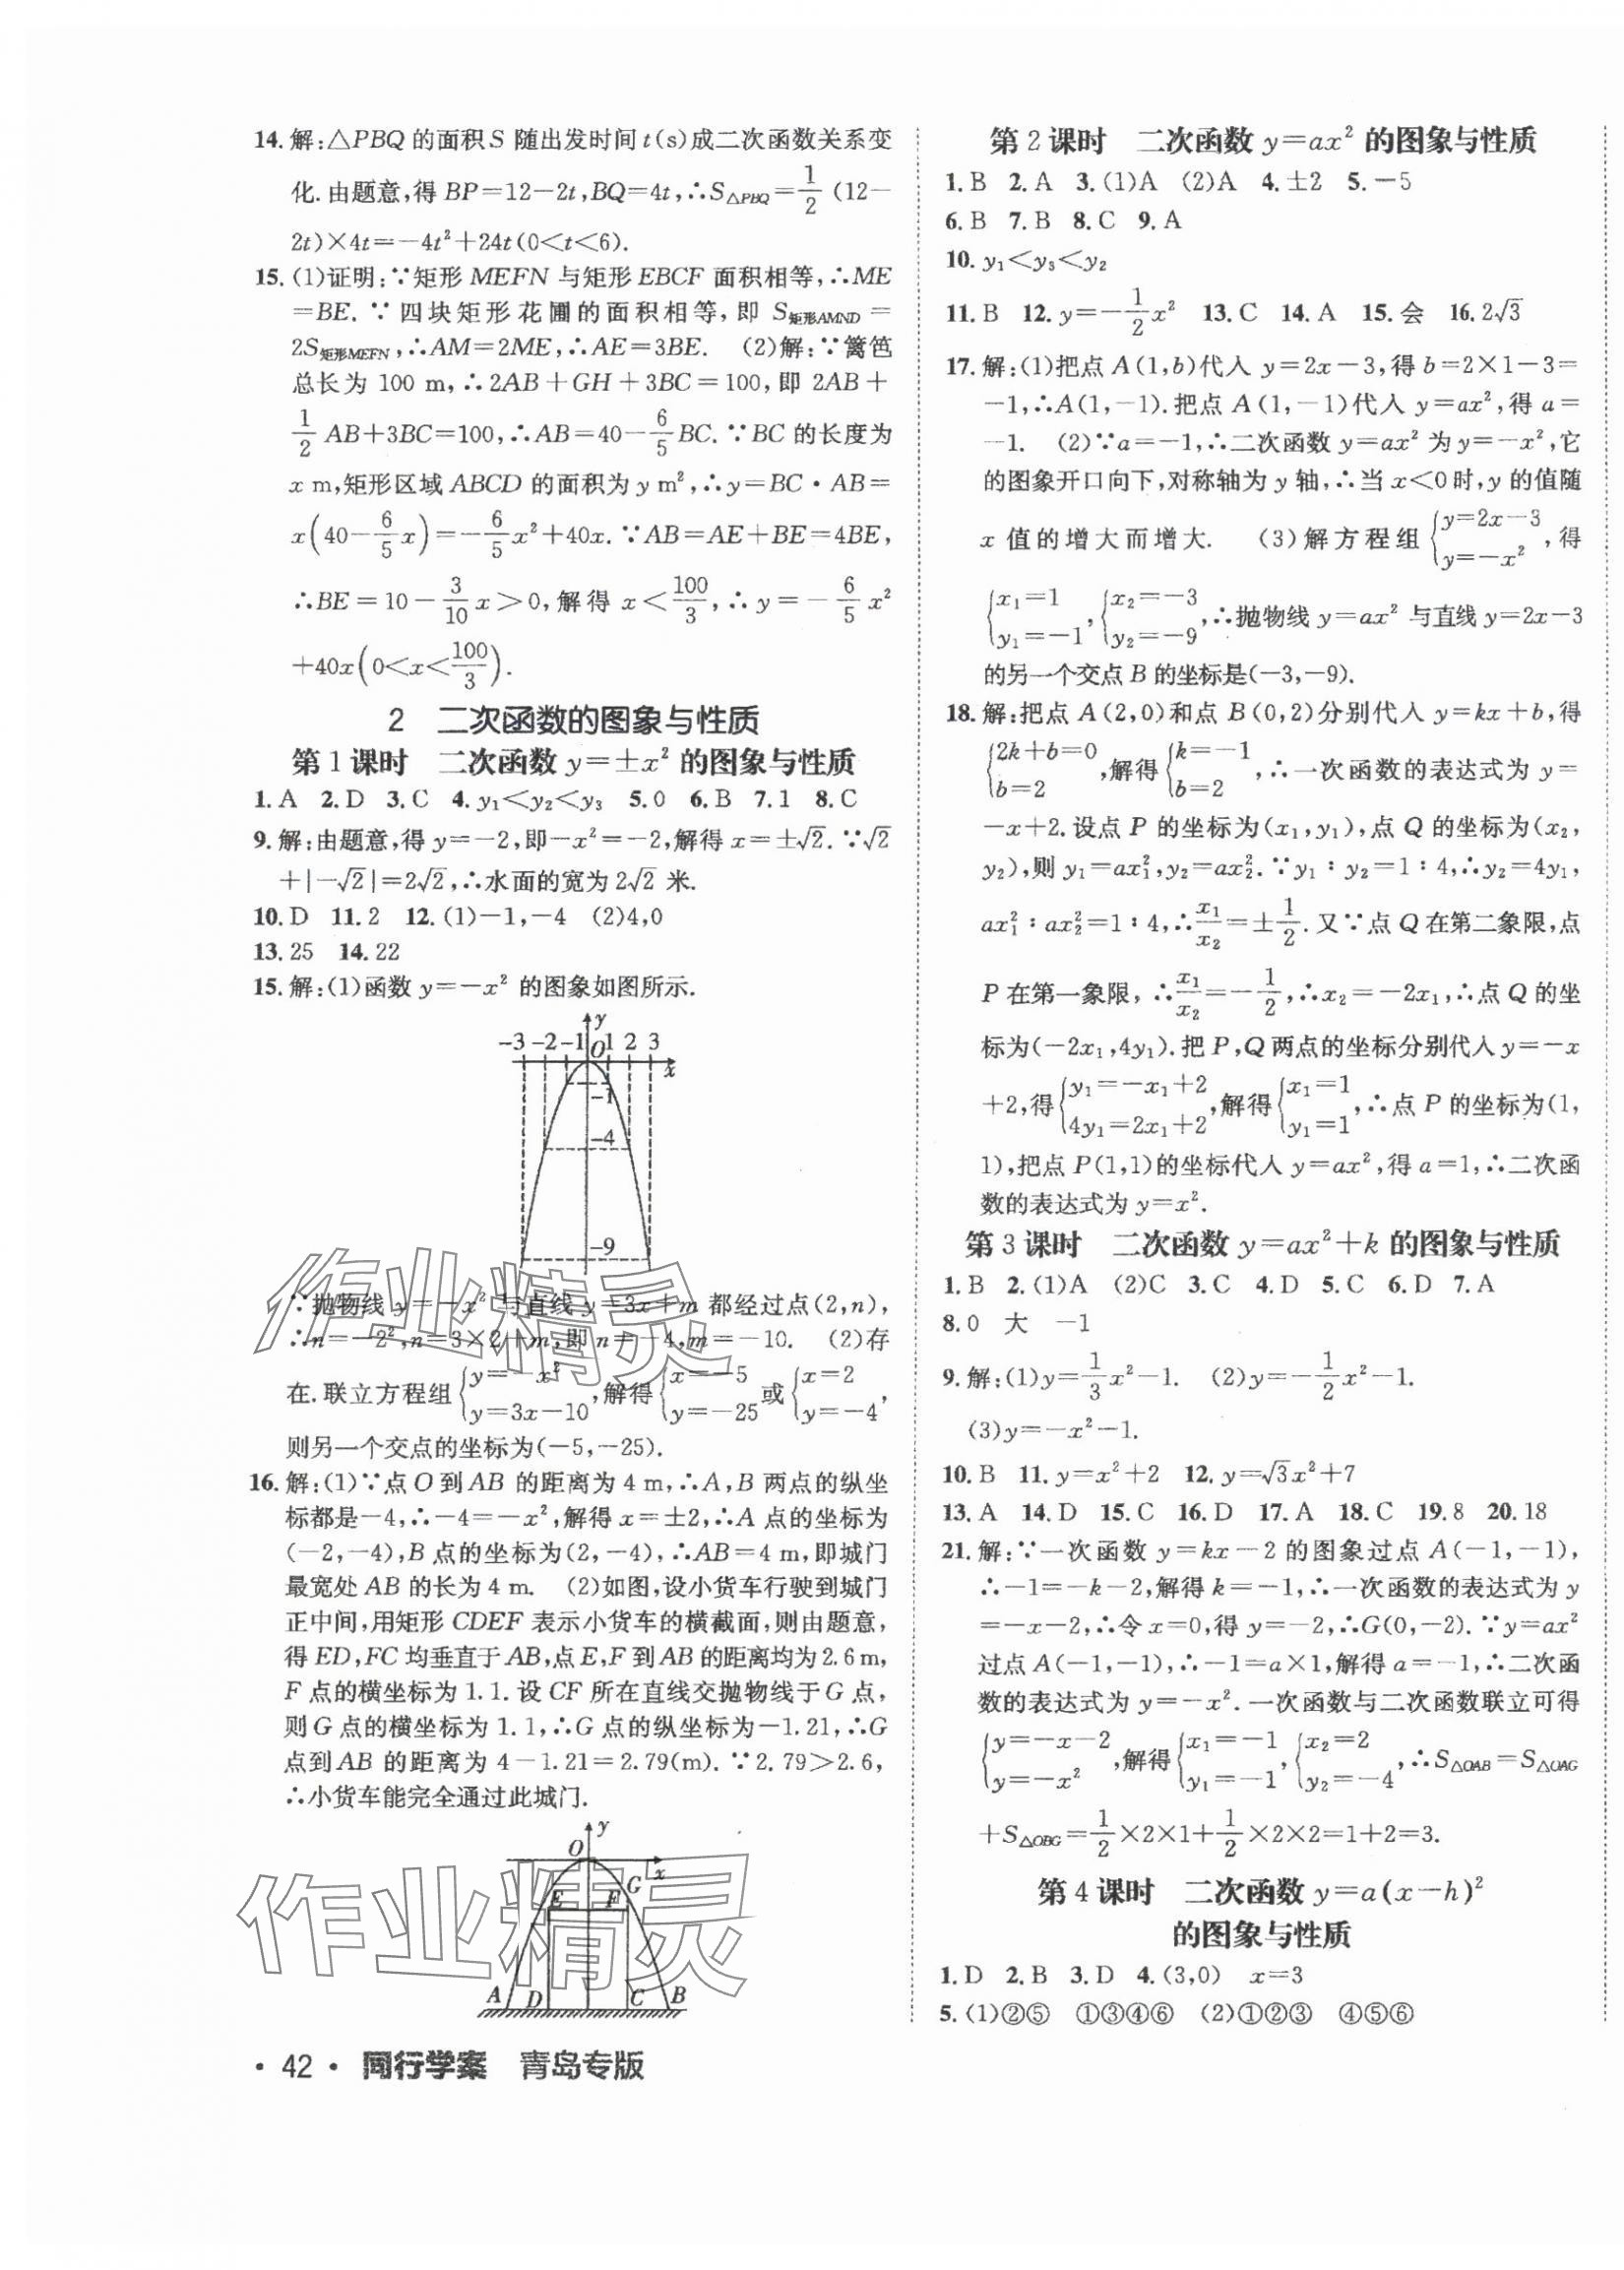 14.解:△PBQ的面积S随出发时间t(s)成二次函数关系变
化.由题意,得BP=12-2t,BQ=4t,∴S△PBQ=1/2(12-
2t)×4t=-4t²+24t(0<t<6).
15.(1)证明:∵矩形MEFN与矩形EBCF面积相等,∴ME
=BE.∵四块矩形花圃的面积相等,即S矩形AMND=
2S矩形MEFN,∴AM=2ME,∴AE=3BE. (2)解:∵篱笆
总长为100 m,∴2AB+GH+3BC=100,即2AB+
1/2AB+3BC=100,∴AB=40-6/5BC.∵BC的长度为
x m,矩形区域ABCD的面积为y m²,∴y=BC·AB=
x(40-6/5x)=-6/5x²+40x.∵AB=AE+BE=4BE,
∴BE=10-3/10x>0,解得x<100/3,∴y=-6/5x²
+40x(0<x<100/3).
2 二次函数的图象与性质
第1课时 二次函数y=±x²的图象与性质
1.A 2.D 3.C 4.y₁<y₂<y₃ 5.0 6.B 7.1 8.C
9.解:由题意,得y=-2,即-x²=-2,解得x=±√2.∵√2
+|-√2|=2√2,∴水面的宽为2√2米.
10.D 11.2 12.(1)-1,-4 (2)4,0
13.25 14.22
15.解:(1)函数y=-x²的图象如图所示.
y
-3 -2 -1 O 1 2 3 x
-1
-4
-9
∵抛物线y=-x²与直线y=3x+m都经过点(2,n),
∴n=-2²,n=3×2+m,即n=-4,m=-10. (2)存
在.联立方程组{y=-x² y=3x-10,解得{x=-5 y=-25或{x=2 y=-4,
则另一个交点的坐标为(-5,-25).
16.解:(1)∵点O到AB的距离为4 m,∴A,B两点的纵坐
标都是-4,∴-4=-x²,解得x=±2,∴A点的坐标为
(-2,-4),B点的坐标为(2,-4),∴AB=4 m,即城门
最宽处AB的长为4 m. (2)如图,设小货车行驶到城门
正中间,用矩形CDEF表示小货车的横截面,则由题意,
得ED,FC均垂直于AB,点E,F到AB的距离均为2.6 m,
F点的横坐标为1.1.设CF所在直线交抛物线于G点,
则G点的横坐标为1.1,∴G点的纵坐标为-1.21,∴G
点到AB的距离为4-1.21=2.79(m).∵2.79>2.6,
∴小货车能完全通过此城门.
y
O x
G
E F
A D C B
作业精灵
作业精灵
·42· 同行学案 青岛专版
第2课时 二次函数y=ax²的图象与性质
1.B 2.A 3.(1)A (2)A 4.±2 5.-5
6.B 7.B 8.C 9.A
10.y₁<y₃<y₂
11.B 12.y=-1/2x² 13.C 14.A 15.会 16.2√3
17.解:(1)把点A(1,b)代入y=2x-3,得b=2×1-3=
-1,∴A(1,-1).把点A(1,-1)代入y=ax²,得a=
-1. (2)∵a=-1,∴二次函数y=ax²为y=-x²,它
的图象开口向下,对称轴为y轴,∴当x<0时,y的值随
x值的增大而增大. (3)解方程组{y=2x-3 y=-x²,得
{x₁=1 y₁=-1,{x₂=-3 y₂=-9,∴抛物线y=ax²与直线y=2x-3
的另一个交点B的坐标是(-3,-9).
18.解:把点A(2,0)和点B(0,2)分别代入y=kx+b,得
{2k+b=0 b=2,解得{k=-1 b=2,∴一次函数的表达式为y=
-x+2.设点P的坐标为(x₁,y₁),点Q的坐标为(x₂,
y₂),则y₁=ax₁²,y₂=ax₂².∵y₁∶y₂=1∶4,∴y₂=4y₁,
ax₁²∶ax₂²=1∶4,∴x₁/x₂=±1/2.又∵点Q在第二象限,点
P在第一象限,∴x₁/x₂=-1/2,∴x₂=-2x₁,∴点Q的坐
标为(-2x₁,4y₁).把P,Q两点的坐标分别代入y=-x
+2,得{y₁=-x₁+2 4y₁=2x₁+2,解得{x₁=1 y₁=1,∴点P的坐标为(1,
1),把点P(1,1)的坐标代入y=ax²,得a=1,∴二次函
数的表达式为y=x².
第3课时 二次函数y=ax²+k的图象与性质
1.B 2.(1)A (2)C 3.C 4.D 5.C 6.D 7.A
8.0 大 -1
9.解:(1)y=1/3x²-1. (2)y=-1/2x²-1.
(3)y=-x²-1.
10.B 11.y=x²+2 12.y=√3x²+7
13.A 14.D 15.C 16.D 17.A 18.C 19.8 20.18
21.解:∵一次函数y=kx-2的图象过点A(-1,-1),
∴-1=-k-2,解得k=-1,∴一次函数的表达式为y
=-x-2,∴令x=0,得y=-2,∴G(0,-2).∵y=ax²
过点A(-1,-1),∴-1=a×1,解得a=-1,∴二次函
数的表达式为y=-x².一次函数与二次函数联立可得
{y=-x-2 y=-x²,解得{x₁=-1 y₁=-1,{x₂=2 y₂=-4,∴S△OAB=S△OAG
+S△OBG=1/2×2×1+1/2×2×2=1+2=3.
第4课时 二次函数y=a(x-h)²
的图象与性质
1.D 2.B 3.D 4.(3,0) x=3
5.(1)②⑤ ①③④⑥ (2)①②③ ④⑤⑥